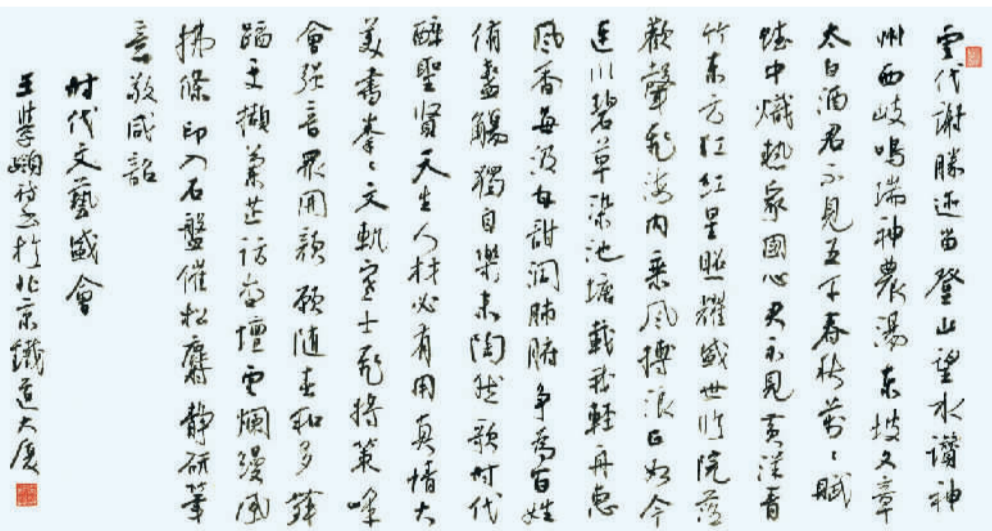 雲代謝勝迹當登山望水讚神
州西岐鳴瑞神農湯東坡文章
太白酒君不見五千春秋前〻賦
中熾熱家國心君不見黃漢青
竹東方紅紅星照耀盛世收院落
歡聲飛海內乘風搏浪正如今
連川碧草染池塘載我輕舟惠
風香每汲甘甜潤肺腑爭為百姓
獨自樂未陶然歌時代
醉聖賢天生人材必有用真情大
美書拳〻文軌寒士
會強音眾開顏願隨春和多
蹈更擷蘭芷訪壇雲爛縵風
拂條印入石盤催松麝靜研筆
意敬咸韶
時代文藝盛會
王學嶺詩書於北京鐵道大廈